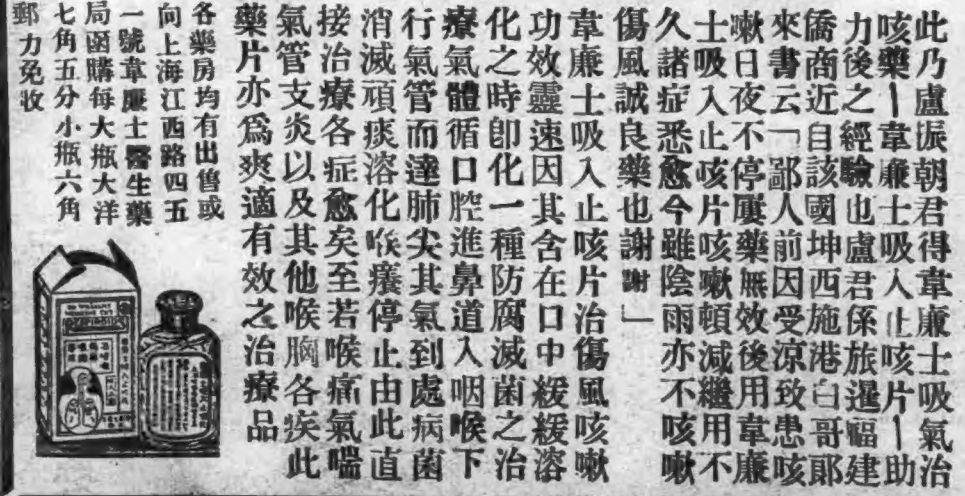 此乃盧振朝君得韋廉士吸氣治
咳藥｜韋廉士吸入止咳片｜助
力後之經驗也盧君係旅暹福建
僑商近自該國坤西施港白哥郞
來書云「鄙人前因受凉致患咳
嗽日夜不停屢藥無效後用韋廉
士吸入止咳片咳嗽頓減繼用不
久諸症悉愈今雖陰雨亦不咳嗽
傷風誠良藥也謝謝」
韋廉士吸入止咳片治傷風咳嗽
功效靈速因其含在口中緩緩溶
化之時卽化一種防腐滅菌之治
療氣體循口腔進鼻道入咽喉下
行氣管而達肺尖其氣到處病菌
消滅頑痰溶化喉癢停止由此直
接治療各症愈矣至若喉痛氣喘
氣管支炎以及其他喉胸各疾此
藥片亦爲爽適有效之治療品
各藥房均有出售或
向上海江西路四五
一號韋廉士醫生藥
局函購每大瓶大洋
七角五分小瓶六角
郵力免收